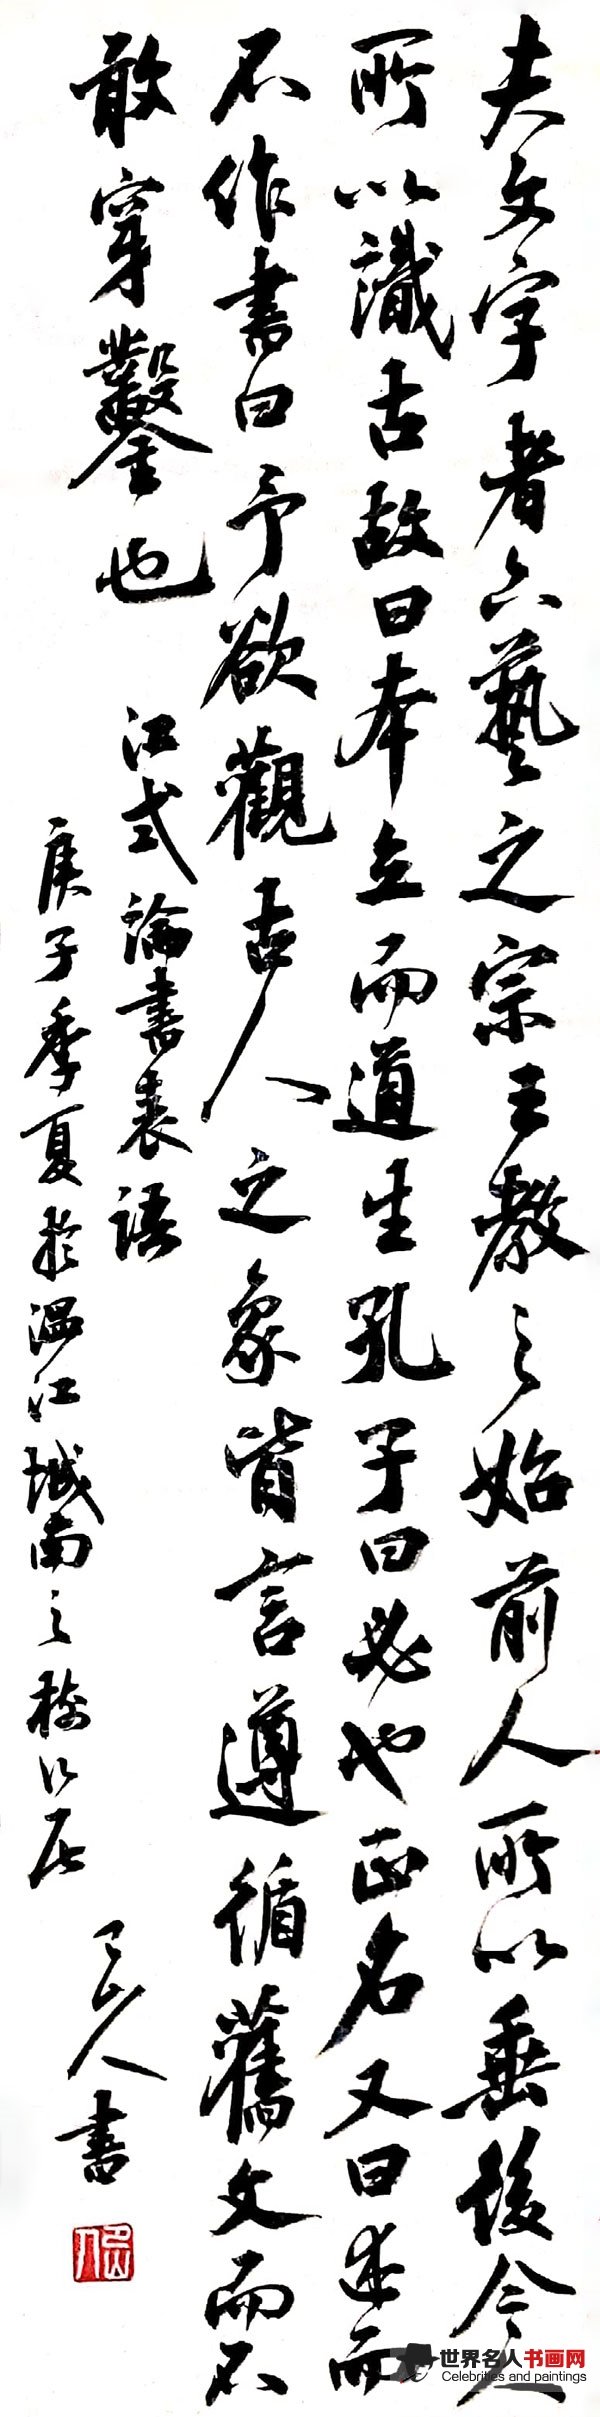 夫文字者六藝之宗王教之始前人所以垂後今人
所以識古故曰本立而道生孔子曰必也正名又曰述而
不作書曰予欲觀古人之象皆言遵循舊文而不
敢穿鑿也
江式論書表語
庚子季夏於温江城南之
山人書
世界名人书画网
Celebrities and paintings